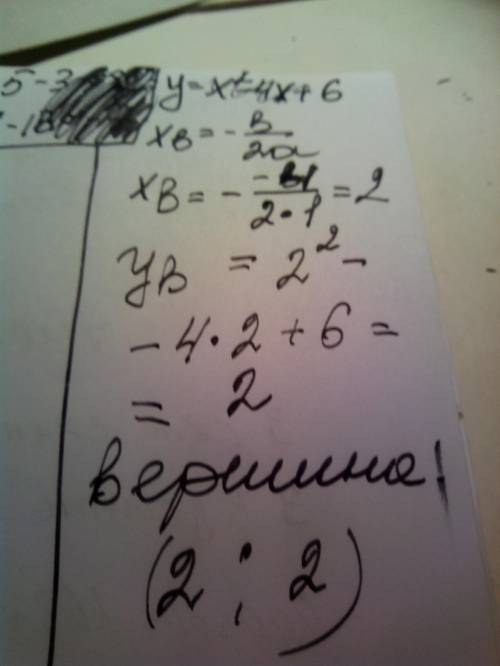 5-3
y=x²-4x+6
-18
xв = - в/2a
xв = - -4/2·1 = 2
yв = 2² -
- 4·2 + 6 =
= 2
вершина!
(2 ; 2)